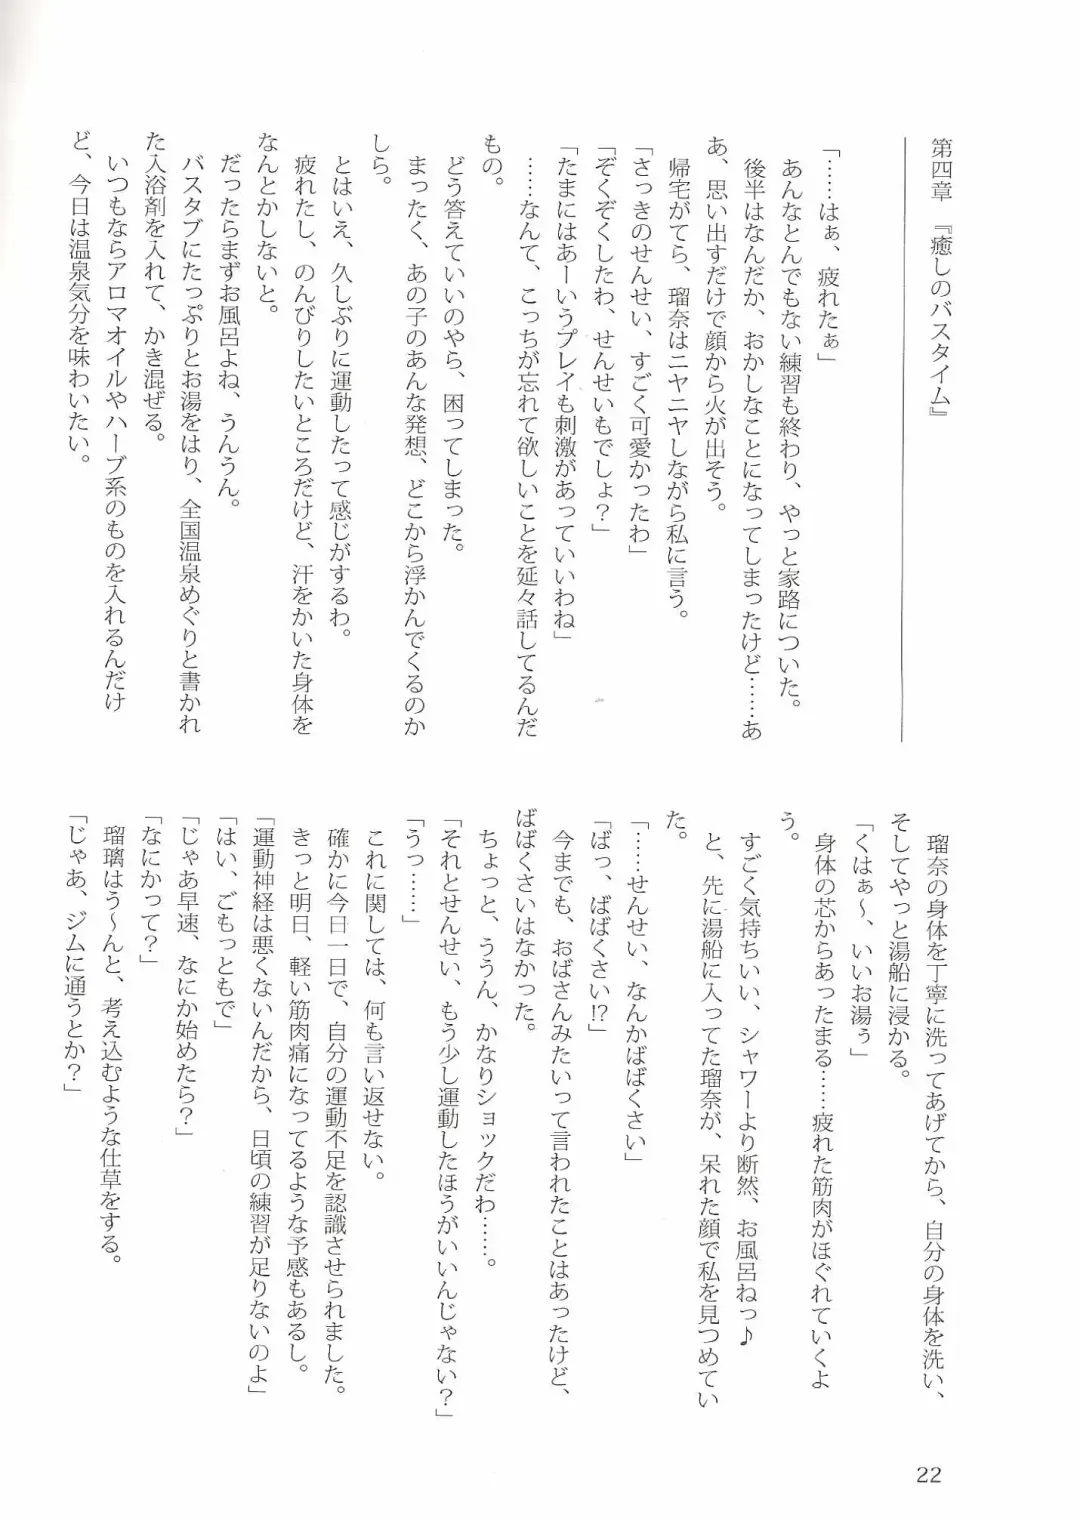 第四章 『癒しのバスタイム』
「……はぁ、疲れたぁ」
あんなとんでもない練習も終わり、やっと家路についた。
後半はなんだか、おかしなことになってしまったけど……あ
あ、思い出すだけで顔から火が出そう。
帰宅がてら、瑠奈はニヤニヤしながら私に言う。
「さっきのせんせい、すごく可愛かったわ」
「ぞくぞくしたわ、せんせいもでしょ？」
「たまにはあーいうプレイも刺激があっていいわね」
……なんて、こっちが忘れて欲しいことを延々話してるんだ
もの。
どう答えていいのやら、困ってしまった。
まったく、あの子のあんな発想、どこから浮かんでくるのか
しら。
とはいえ、久しぶりに運動したって感じがするわ。
疲れたし、のんびりしたいところだけど、汗をかいた身体を
なんとかしないと。
だったらまずお風呂よね、うんうん。
バスタブにたっぷりとお湯をはり、全国温泉めぐりと書かれ
た入浴剤を入れて、かき混ぜる。
いつもならアロマオイルやハーブ系のものを入れるんだけ
ど、今日は温泉気分を味わいたい。
瑠奈の身体を丁寧に洗ってあげてから、自分の身体を洗い、
そしてやっと湯船に浸かる。
「くはぁ～、いいお湯ぅ」
身体の芯からあったまる……疲れた筋肉がほぐれていくよ
う。
すごく気持ちいい、シャワーより断然、お風呂ねっ♪
と、先に湯船に入ってた瑠奈が、呆れた顔で私を見つめてい
た。
「……せんせい、なんかばばくさい」
「ばっ、ばばくさい!?」
今までも、おばさんみたいって言われたことはあったけど、
ばばくさいはなかった。
ちょっと、ううん、かなりショックだわ……。
「それとせんせい、もう少し運動したほうがいいんじゃない？」
「うっ……」
これに関しては、何も言い返せない。
確かに今日一日で、自分の運動不足を認識させられました。
きっと明日、軽い筋肉痛になってるような予感もあるし。
「運動神経は悪くないんだから、日頃の練習が足りないのよ」
「はい、ごもっともで」
「じゃあ早速、なにか始めたら？」
「なにかって？」
瑠璃はう～んと、考え込むような仕草をする。
「じゃあ、ジムに通うとか？」
22